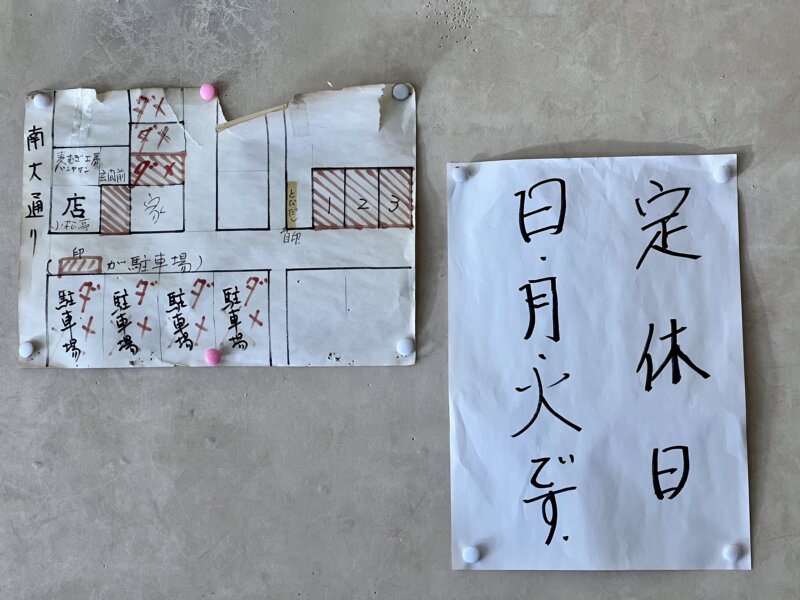 南大通り
ダメ
ダメ
ダメ
麦むぎ工房
パンヤサン
玄関前
店
小松高
家
とびだし
看印
1
2
3
(印が駐車場)
駐車場
ダメ
駐車場
ダメ
駐車場
ダメ
駐車場
ダメ
定休日
日・月・火です.